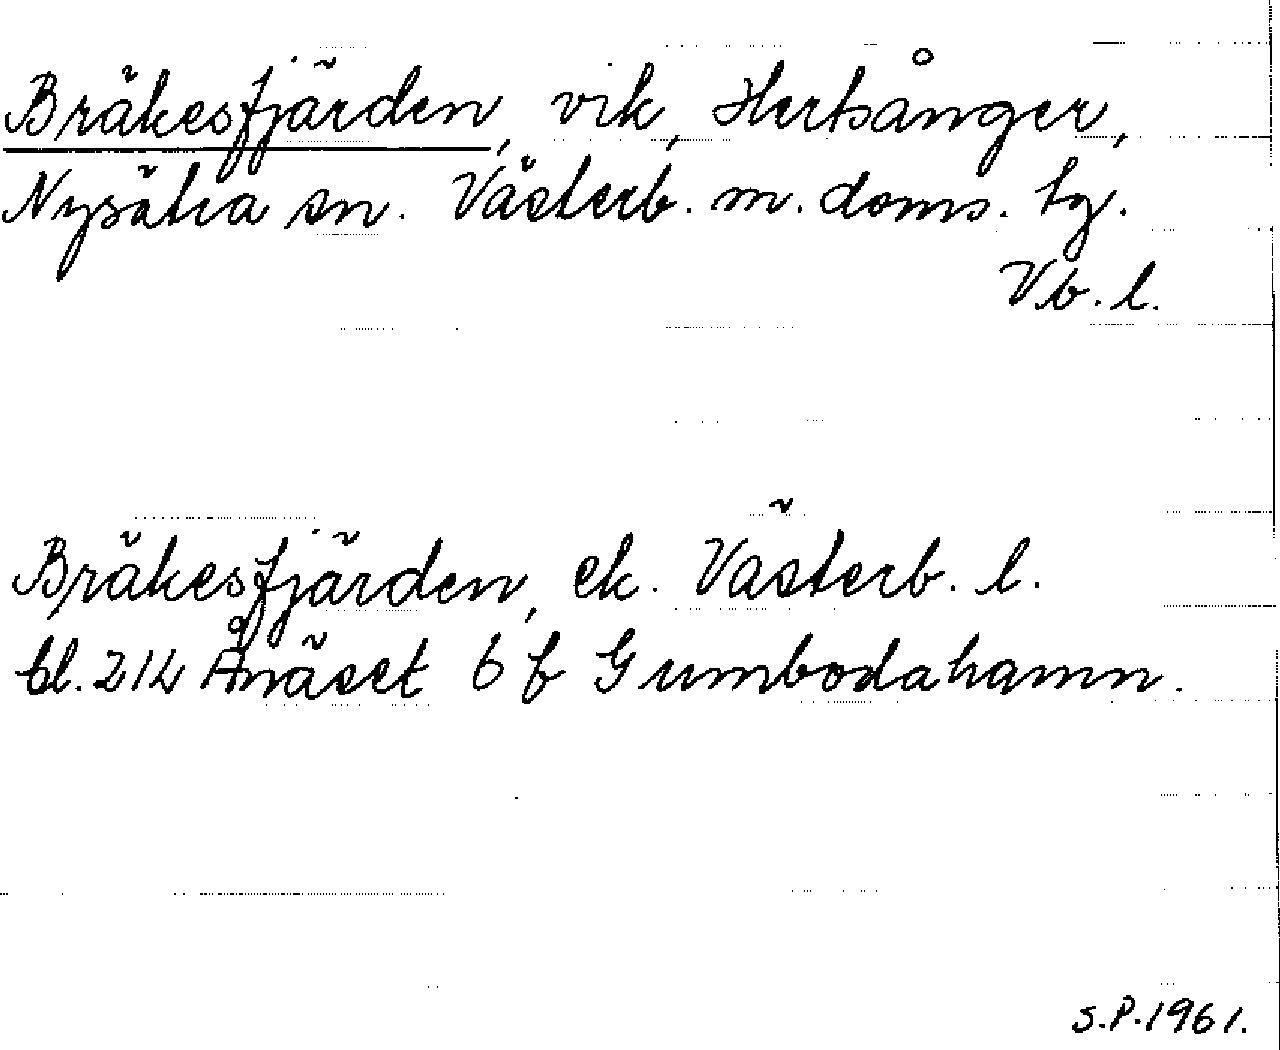 Bräkesfjärden, vik, Hertsånger,
Nysätra sn. Västerb. m. doms. tg.
Vb. l.
Bräkesfjärden, ek. Västerb. l.
bl. 214 Ånäset 6 f Gumbodahamn.
S.P. 1961.